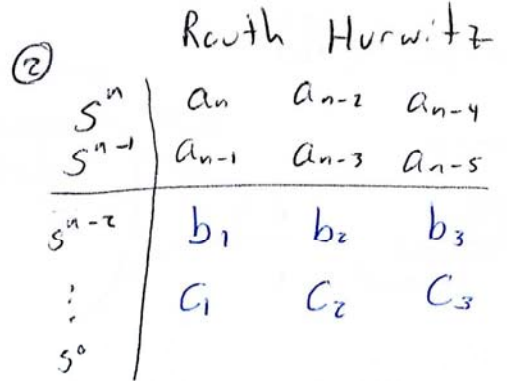 Routh Hurwitz
②
sⁿ aₙ aₙ₋₂ aₙ₋₄
sⁿ⁻¹ aₙ₋₁ aₙ₋₃ aₙ₋₅
sⁿ⁻² b₁ b₂ b₃
⋮ C₁ C₂ C₃
s⁰